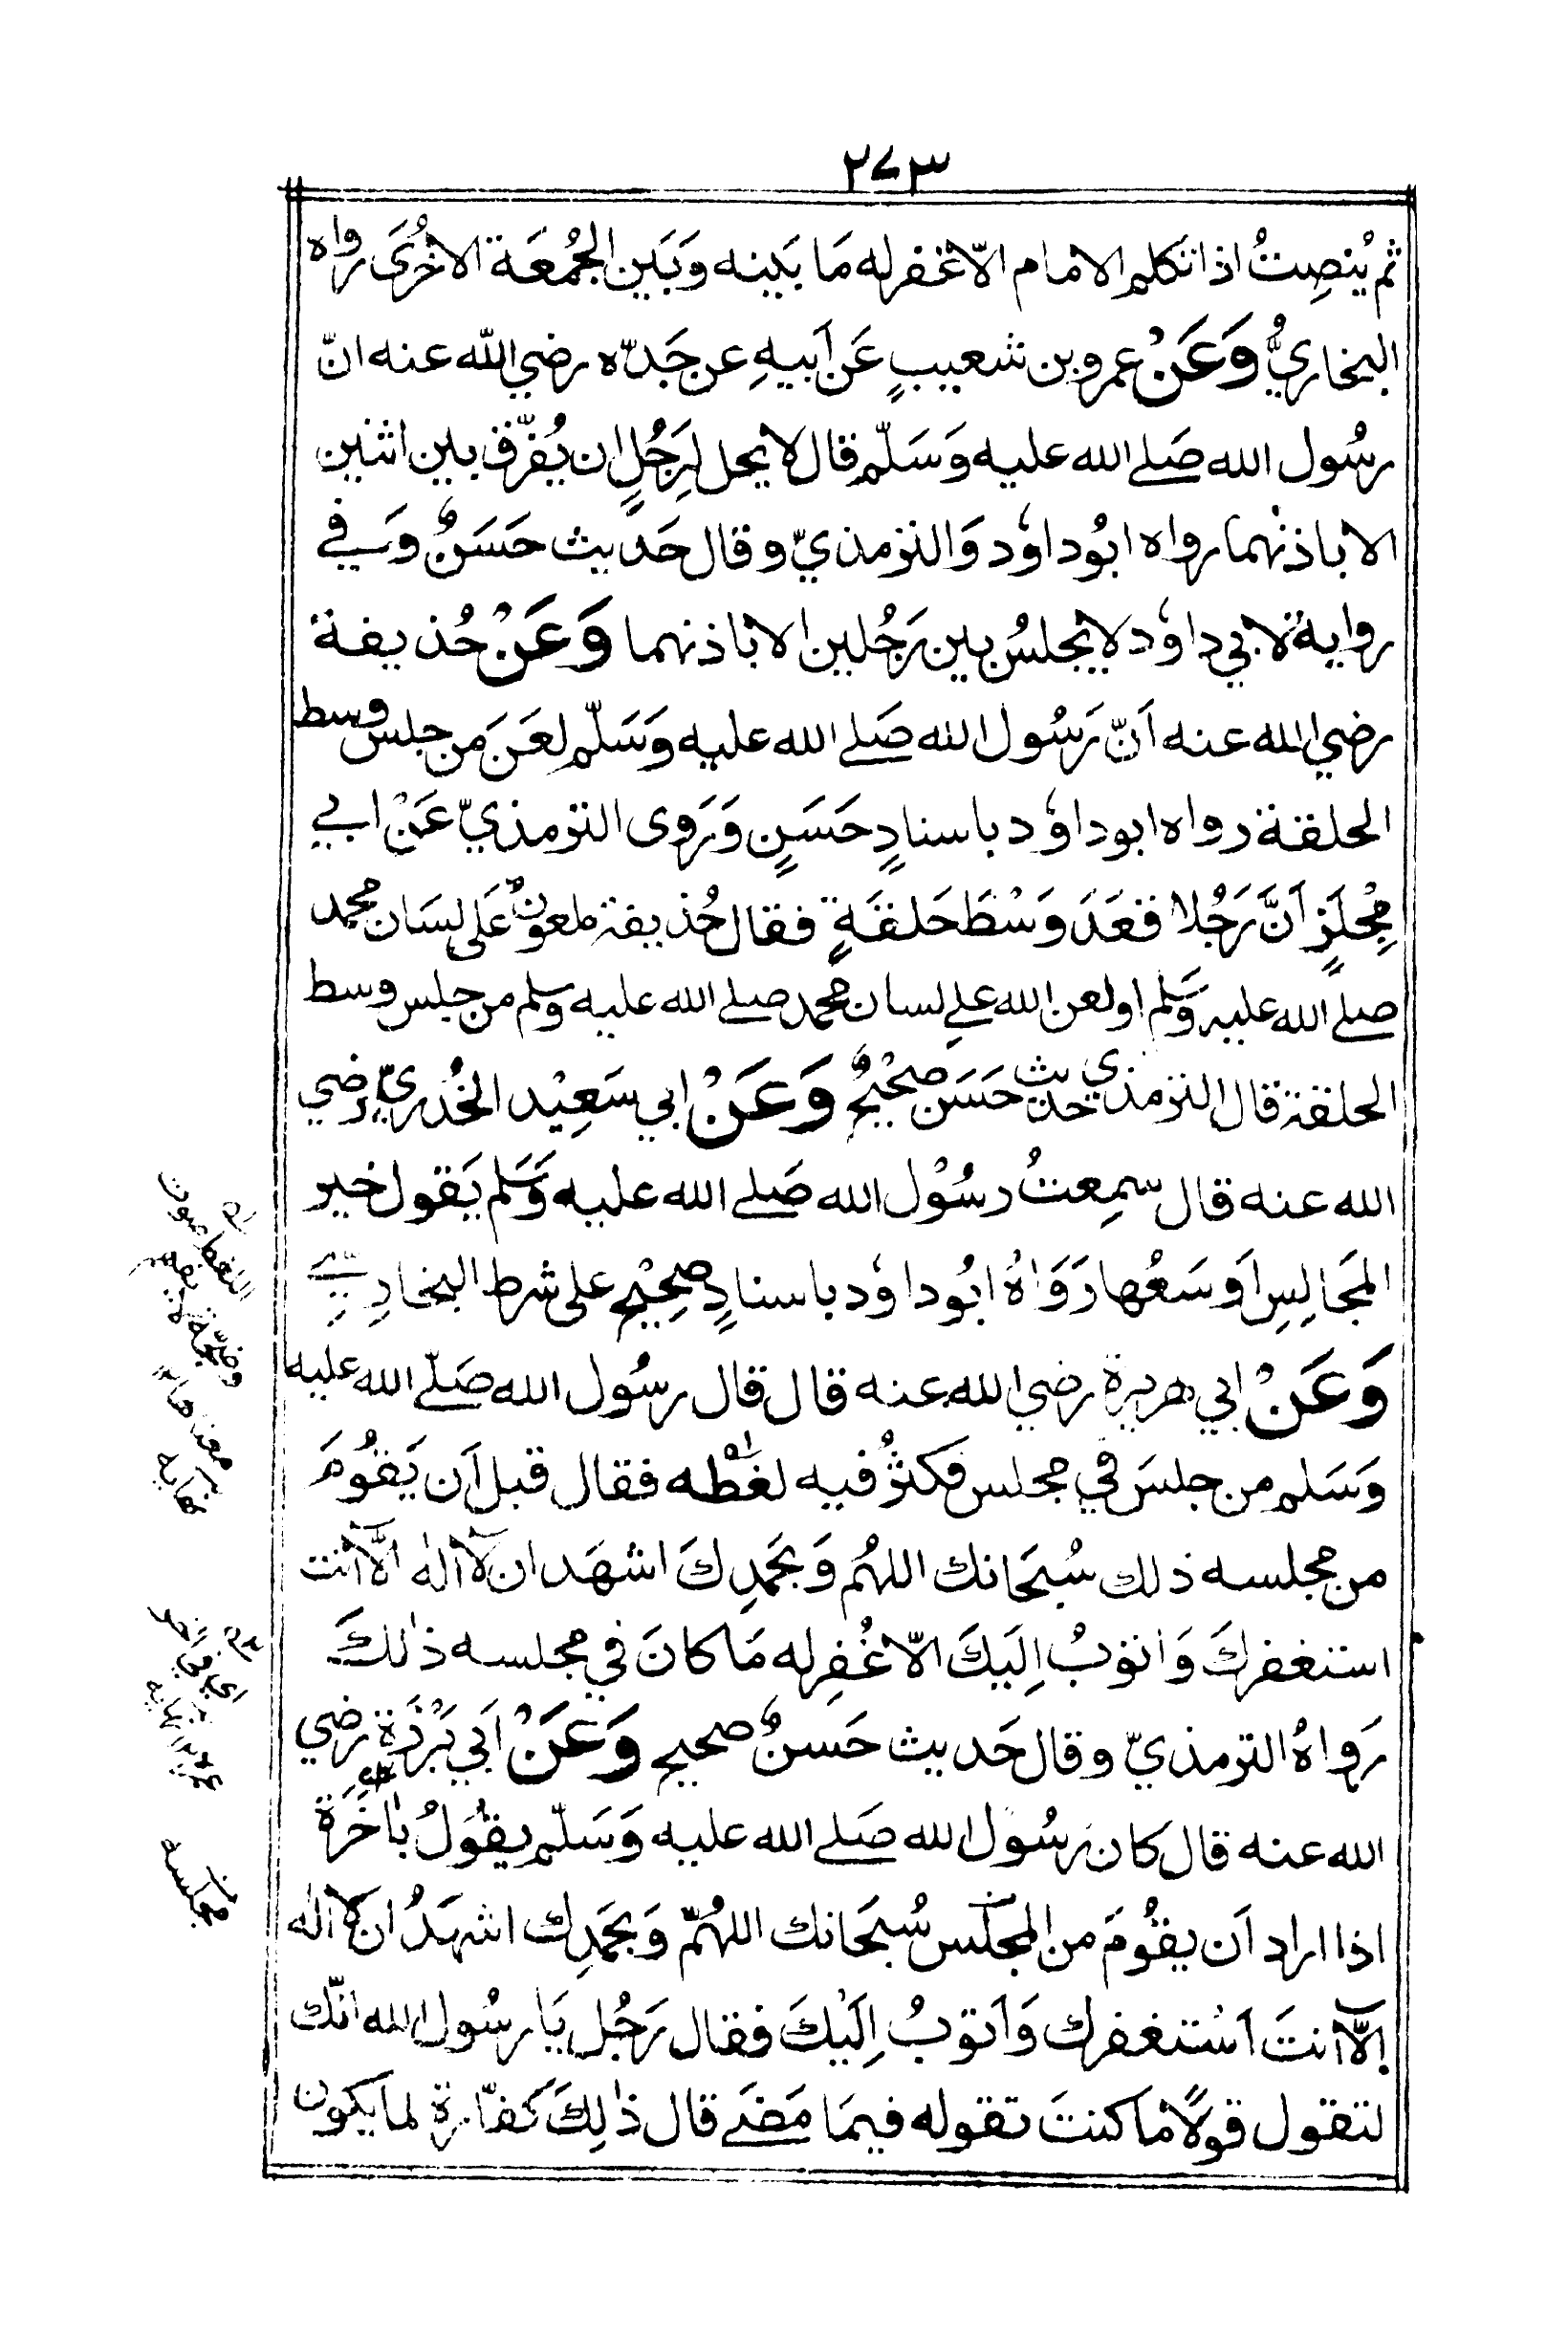 ٢٧٣
ثم يُنصِتُ اذا تكلم الامام الّا غفر له مَا بَينه وَبَين الجُمُعَة الاخُرٰى رواه
البخاريُّ وَعَنْ عمرو بن شعيبٍ عَن اَبيهِ عن جَدّه رضي الله عنه انّ
رسُول الله صَلے الله عليه وَسَلّم قال لا يحل لِرَجُلٍ ان يُفرّق بين اثنين
الا باذنهما رواه ابُو داوٗد وَالترمذيّ وقال حَديث حَسَنٌ وَفي
روايةٍ لابي داوٗد لا يَجلسُ بين رَجُلين الا باذنهما وَعَنْ حُذيفة
رضي الله عنه اَنّ رَسُول الله صَلے الله عليه وَسَلّم لعَنَ مَن جلس وسط
الحلقة رواه ابو داوٗد باسنادٍ حَسَنٍ وَرَوى الترمذيّ عَنْ ابي
مِجْلَزٍ اَنَّ رَجُلا قعَدَ وَسْطَ حَلقَةٍ فقال حُذيفة ملعونٌ عَلى لسَان محمد
صلے الله عليه وَسَلم او لعن الله علے لسان محمد صلے الله عليه وسلم من جلس وسط
الحلقة قال الترمذي حديث حَسَن صَحيْحٌ وَعَنْ ابي سَعِيْد الخُدريّ رضي
الله عنه قال سمِعتُ رسُوْل الله صَلے الله عليه وَسَلم يَقول خير
المَجالِسِ اَوسَعُها رَوَاهُ ابُو داوٗد باسنادٍ صحِيْحٍ على شرط البخاريِّ
وَعَنْ ابي هريرة رضي الله عنه قال قال رسُول الله صَلّے الله عليه
وَسَلم من جلسَ في مجلس فكثُر فيه لغطه فقال قبل اَن يَقُومَ
من مجلسه ذلك سُبحَانك اللهُم وَبحَمدِكَ اشهَد ان لآ الٰه الّآ اَنت
استغفركَ وَاتوبُ اِلَيكَ الّا غُفِر له مَا كانَ في مجلسه ذٰلكَ
رَواهُ الترمذيّ وقال حَديث حَسنٌ صحيح وَعَنْ اَبي بَرْزَة رضي
الله عنه قال كان رَسُول الله صَلے الله عليه وَسَلّم يقُوَلُ بأَخَرَة
اذا اراد اَن يقُومَ من المجلس سُبحَانك اللهُمّ وَبحَمدِك اشهَدُ ان لآ الٰه
اِلّآ انتَ اَسْتغفرك وَاَتوبُ اِلَيْكَ فقال رَجُل يَا رسُول الله انّك
لتقول قولًا مَا كنتَ تقوله فيمَا مَضَے قال ذٰلِكَ كَفّارة لما يكون
مجلسه